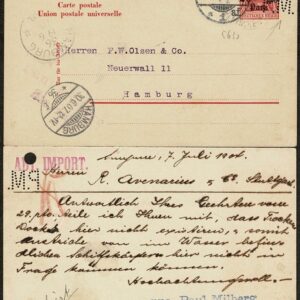 Carte postale
Union postale universelle
Herren F.W. Olsen & Co.
Neuerwall 11
Hamburg
HAMBURG
ABT. IMPORT.
P.M.
7. Juli
Herren
R. Avenarius & Co Stuttgart
Antwortlich Ihres Geehrten vom
29. pto. teile ich Ihnen mit, dass Trocken
Docks hier nicht existiren, somit
Anstriche von im Wasser befind
lichen Schiffskörpern hier nicht in
Frage kommen können.
Hochachtungsvoll
Paul Milberg